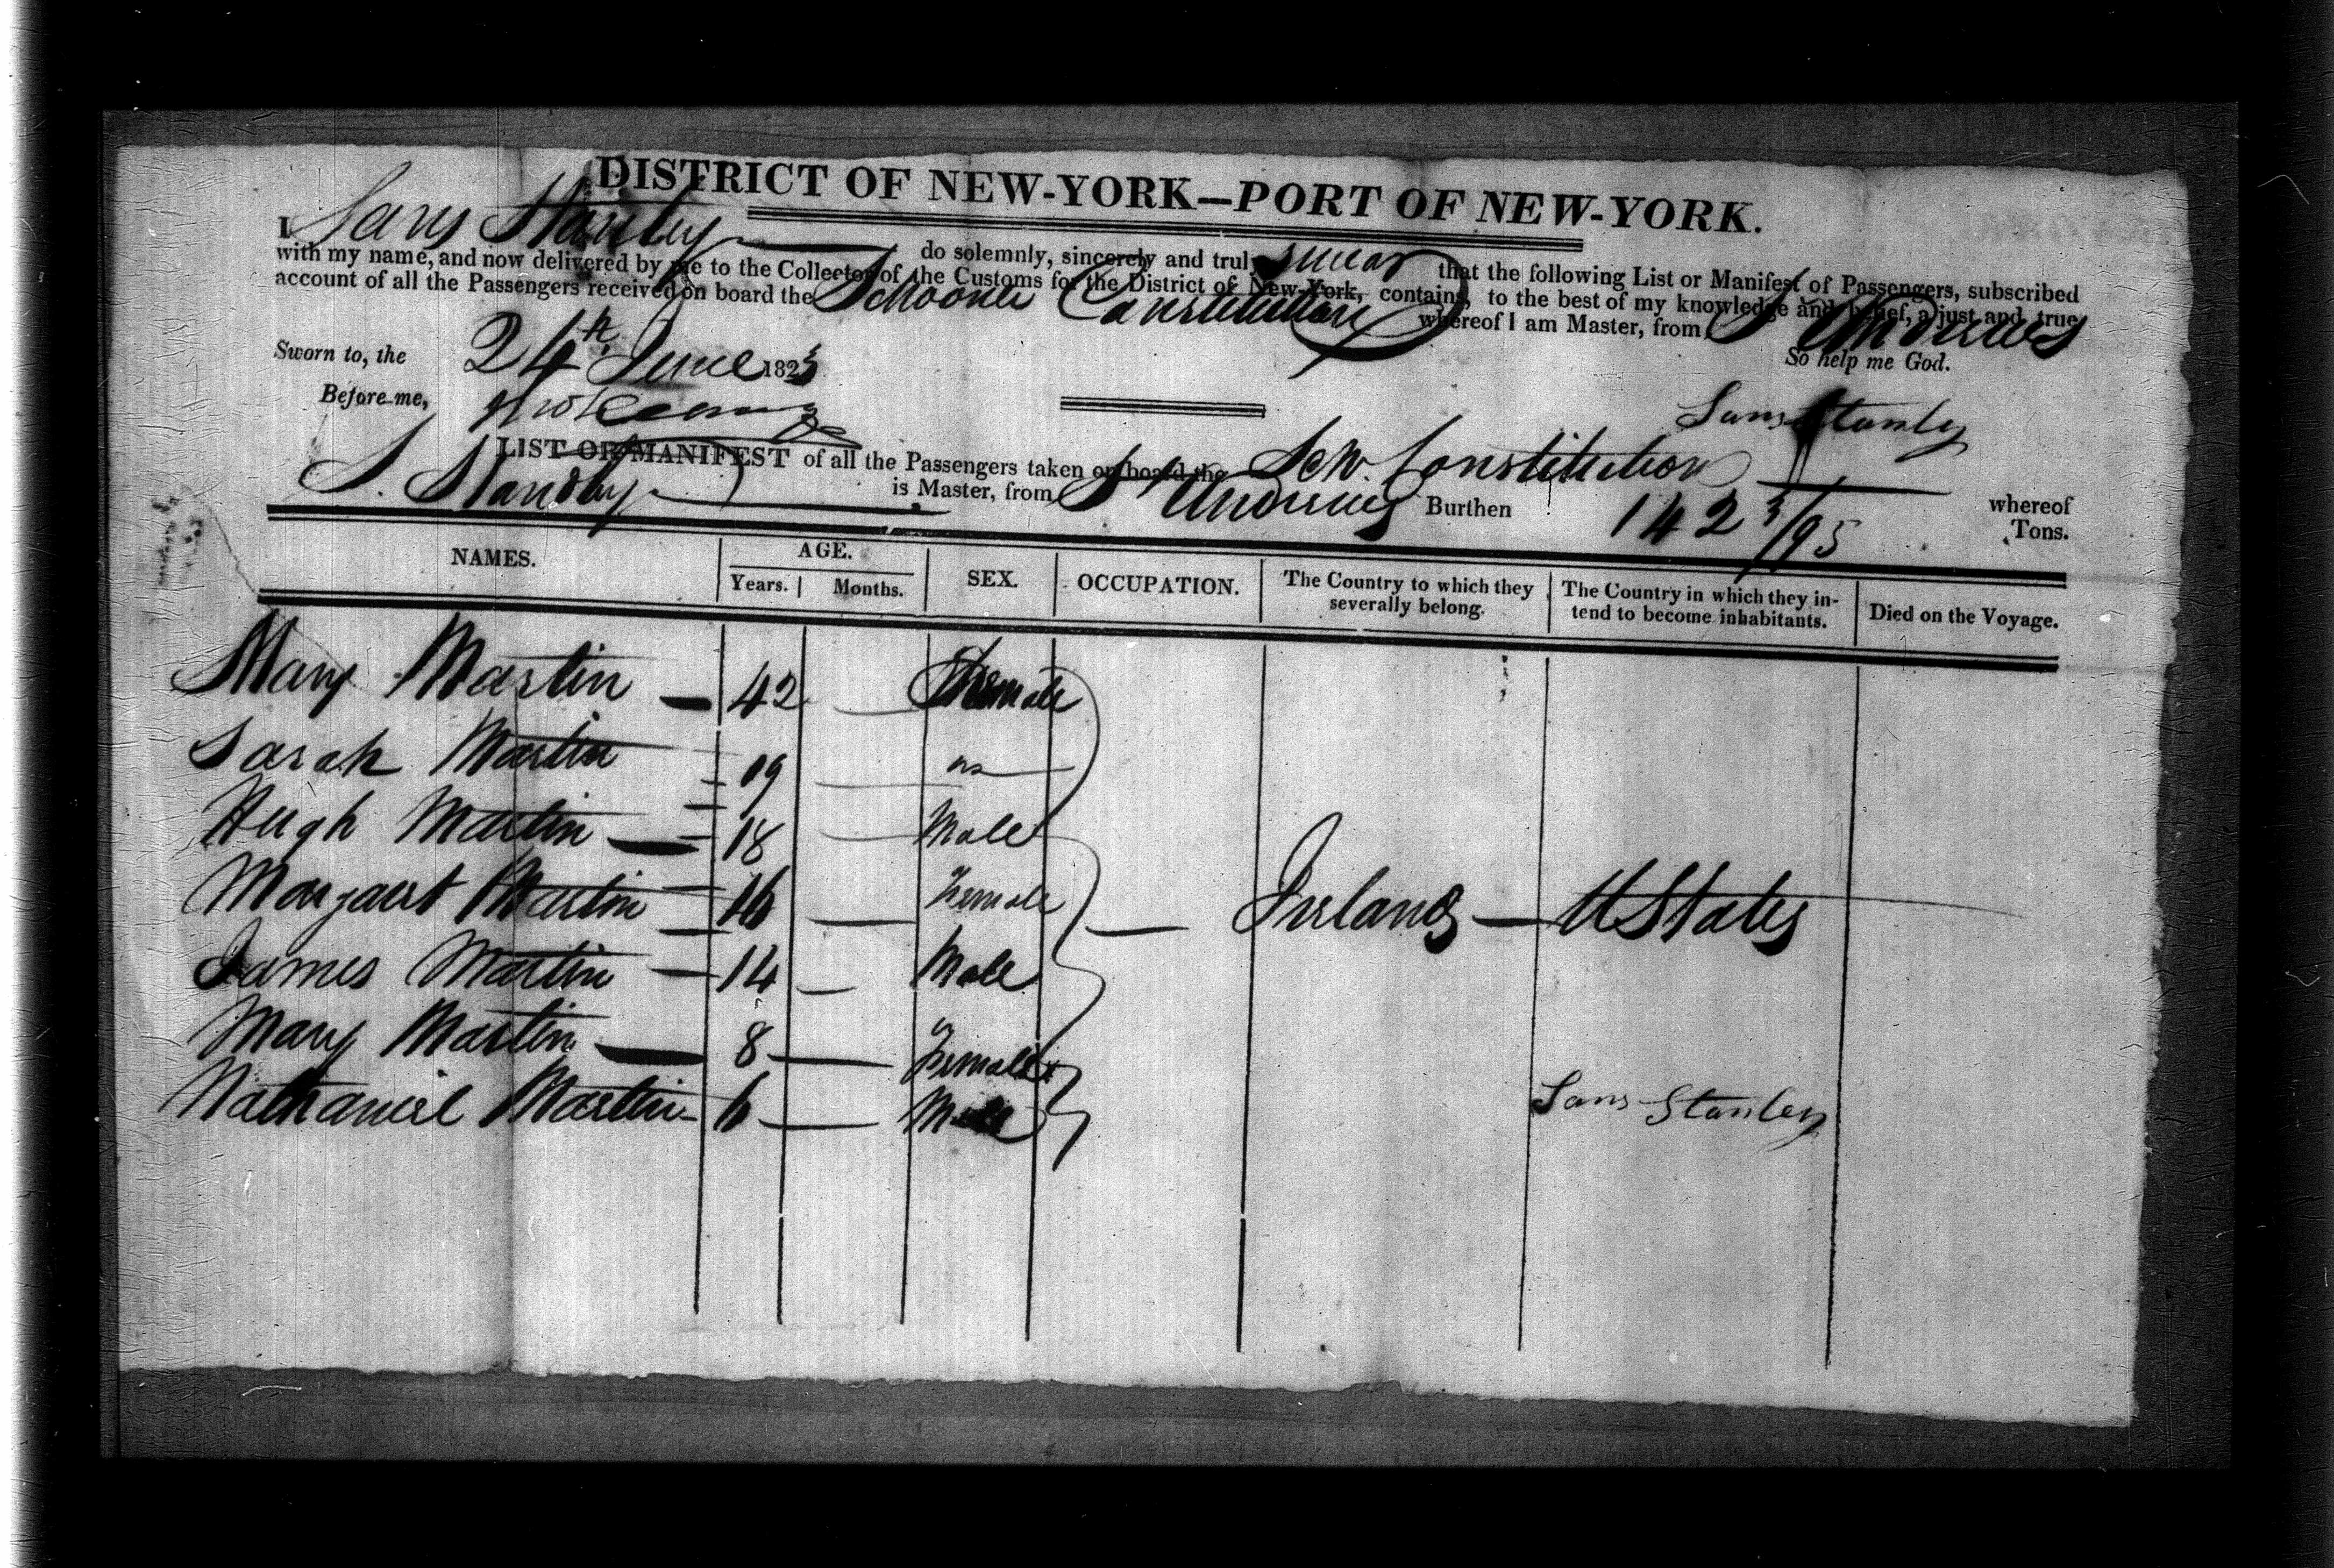 DISTRICT OF NEW-YORK—PORT OF NEW-YORK.
I Sans Stanley do solemnly, sincerely and truly swear that the following List or Manifest of Passengers, subscribed
with my name, and now delivered by me to the Collector of the Customs for the District of New-York, contains, to the best of my knowledge and belief, a just and true
account of all the Passengers received on board the Schooner Constitution whereof I am Master, from St Andrews
So help me God.
Sworn to, the 24th June 1823
Before me,
Sans Stanley
LIST OR MANIFEST of all the Passengers taken on board the Schr Constitution whereof
S. Standly is Master, from St Andrews Burthen 142 3/95 Tons.
NAMES. AGE. SEX. OCCUPATION. The Country to which they severally belong. The Country in which they intend to become inhabitants. Died on the Voyage.
Years. Months.
Mary Martin — 42 — Female
Sarah Martin — 19 —
Hugh Martin — 18 — Male
Margaert Martin — 16 — Female
Ireland — U States
James Martin — 14 — Male
Mary Martin — 8 — Female
Nathaniel Martin — 6 — Male
Sans Stanley